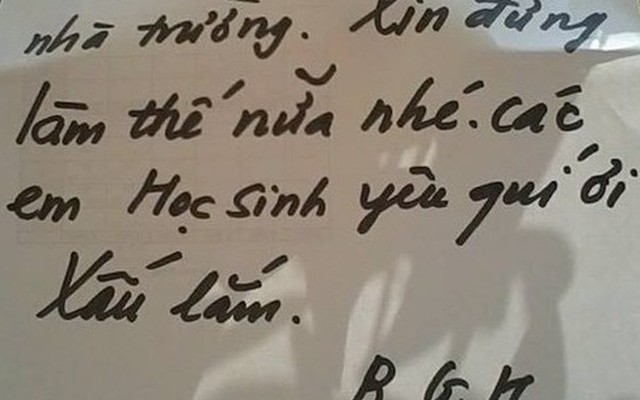 nhà trường. Xin đừng
làm thế nữa nhé. các
em Học sinh yêu quí ơi
Xấu lắm.
B G H